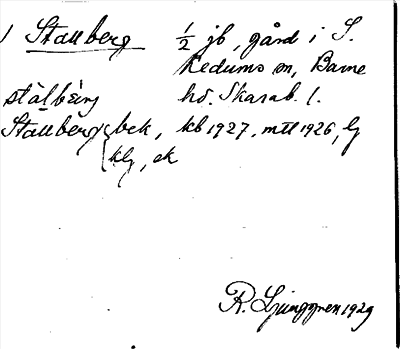 1 Stallberg ½ jb, gård i S.
Kedums sn, Barne
stålbärj hd. Skarab. l.
Stallberg bek, kb 1927, mtl 1926, lg
klg, ek
R. Ljunggren 1929